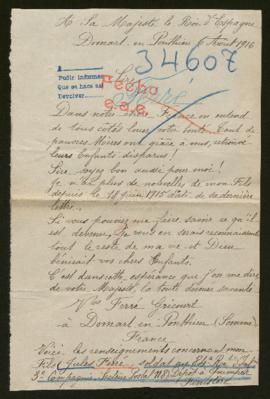 A Sa Majesté le Roi d'Espagne
Domart en Ponthieu 6 Août 1916
34607
Sire
Pedir informes
Que se haga así
Devolver
Fecho
Dans notre chère France on entend
de tous côtés louer votre bonté. Tant de
pauvres Mères ont grâce à vous, retrouvé
leurs Enfants disparus!
Sire, soyez bon aussi pour moi!
Je n'ai plus de nouvelle de mon Fils
depuis le 18 Juin 1915 date de sa dernière
lettre.
Si vous pouvez me faire savoir ce qu'il
est devenu, je vous en serais reconnaissante
tout le reste de ma vie et Dieu
bénirait vos chers Enfants.
C'est dans cette espérance que j'ose me dire
de votre Majesté, la toute dévouée servante
Vve Ferré
à Domart en Ponthieu (Somme)
France
Voici les renseignements concernant mon
Fils Jules Ferré, soldat au
3e Compagnie, Secteur Postal Dépôt à Quimper
Finistère